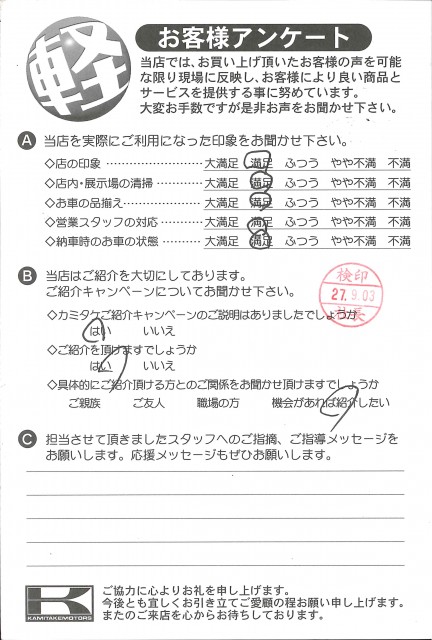 軽
お客様アンケート
当店では、お買い上げ頂いたお客様の声を可能
な限り現場に反映し、お客様により良い商品と
サービスを提供する事に努めています。
大変お手数ですが是非お声をお聞かせ下さい。
A 当店を実際にご利用になった印象をお聞かせ下さい。
◇店の印象 ………………… 大満足 満足 ふつう やや不満 不満
◇店内・展示場の清掃 ………… 大満足 満足 ふつう やや不満 不満
◇お車の品揃え ……………… 大満足 満足 ふつう やや不満 不満
◇営業スタッフの対応 ………… 大満足 満足 ふつう やや不満 不満
◇納車時のお車の状態 ………… 大満足 満足 ふつう やや不満 不満
B 当店はご紹介を大切にしております。
ご紹介キャンペーンについてお聞かせ下さい。
検印
27.9.03
◇カミタケご紹介キャンペーンのご説明はありましたでしょうか
はい いいえ
◇ご紹介を頂けますでしょうか
はい いいえ
◇具体的にご紹介頂ける方とのご関係をお聞かせ頂けますでしょうか
ご親族 ご友人 職場の方 機会があれば紹介したい
C 担当させて頂きましたスタッフへのご指摘、ご指導メッセージを
お願いします。応援メッセージもぜひお願いします。
KAMITAKEMOTORS
ご協力に心よりお礼を申し上げます。
今後とも宜しくお引き立てご愛顧の程お願い申し上げます。
またのご来店を心からお待ちしております。